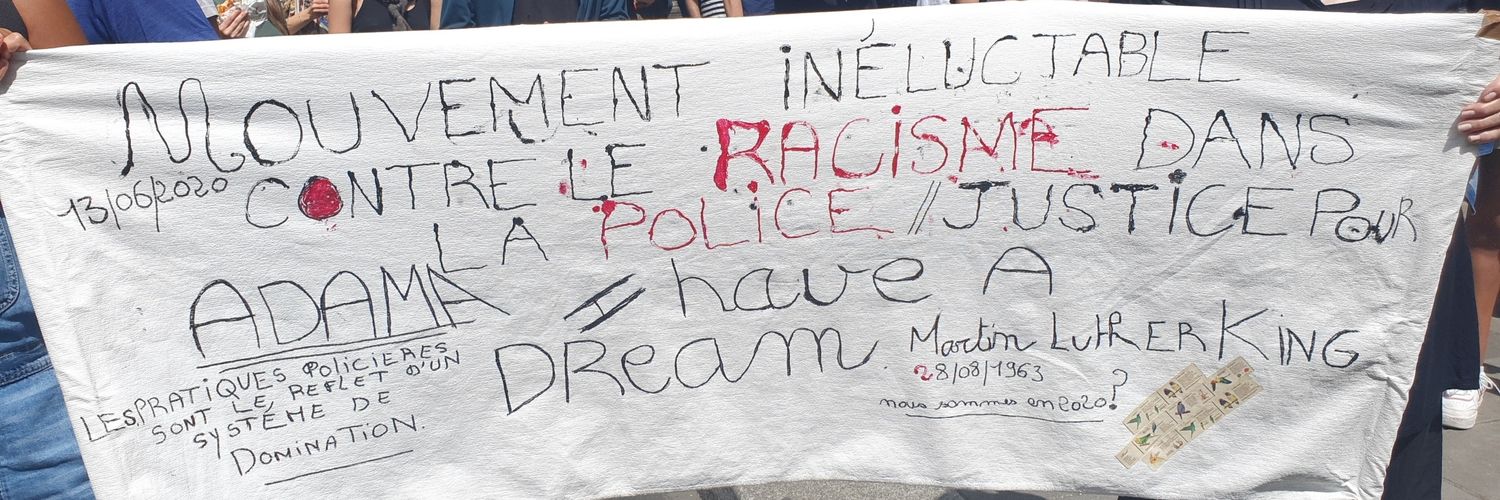 MOUVEMENT INÉLUCTABLE
13/06/2020 CONTRE LE RACISME DANS
LA POLICE // JUSTICE POUR
ADAMA I have A
DREAM. Martin LUTHER KING
28/08/1963
nous sommes en 2020!?
LES PRATIQUES POLICIERES
SONT LE REFLET D'UN
SYSTÈME DE
DOMINATION.